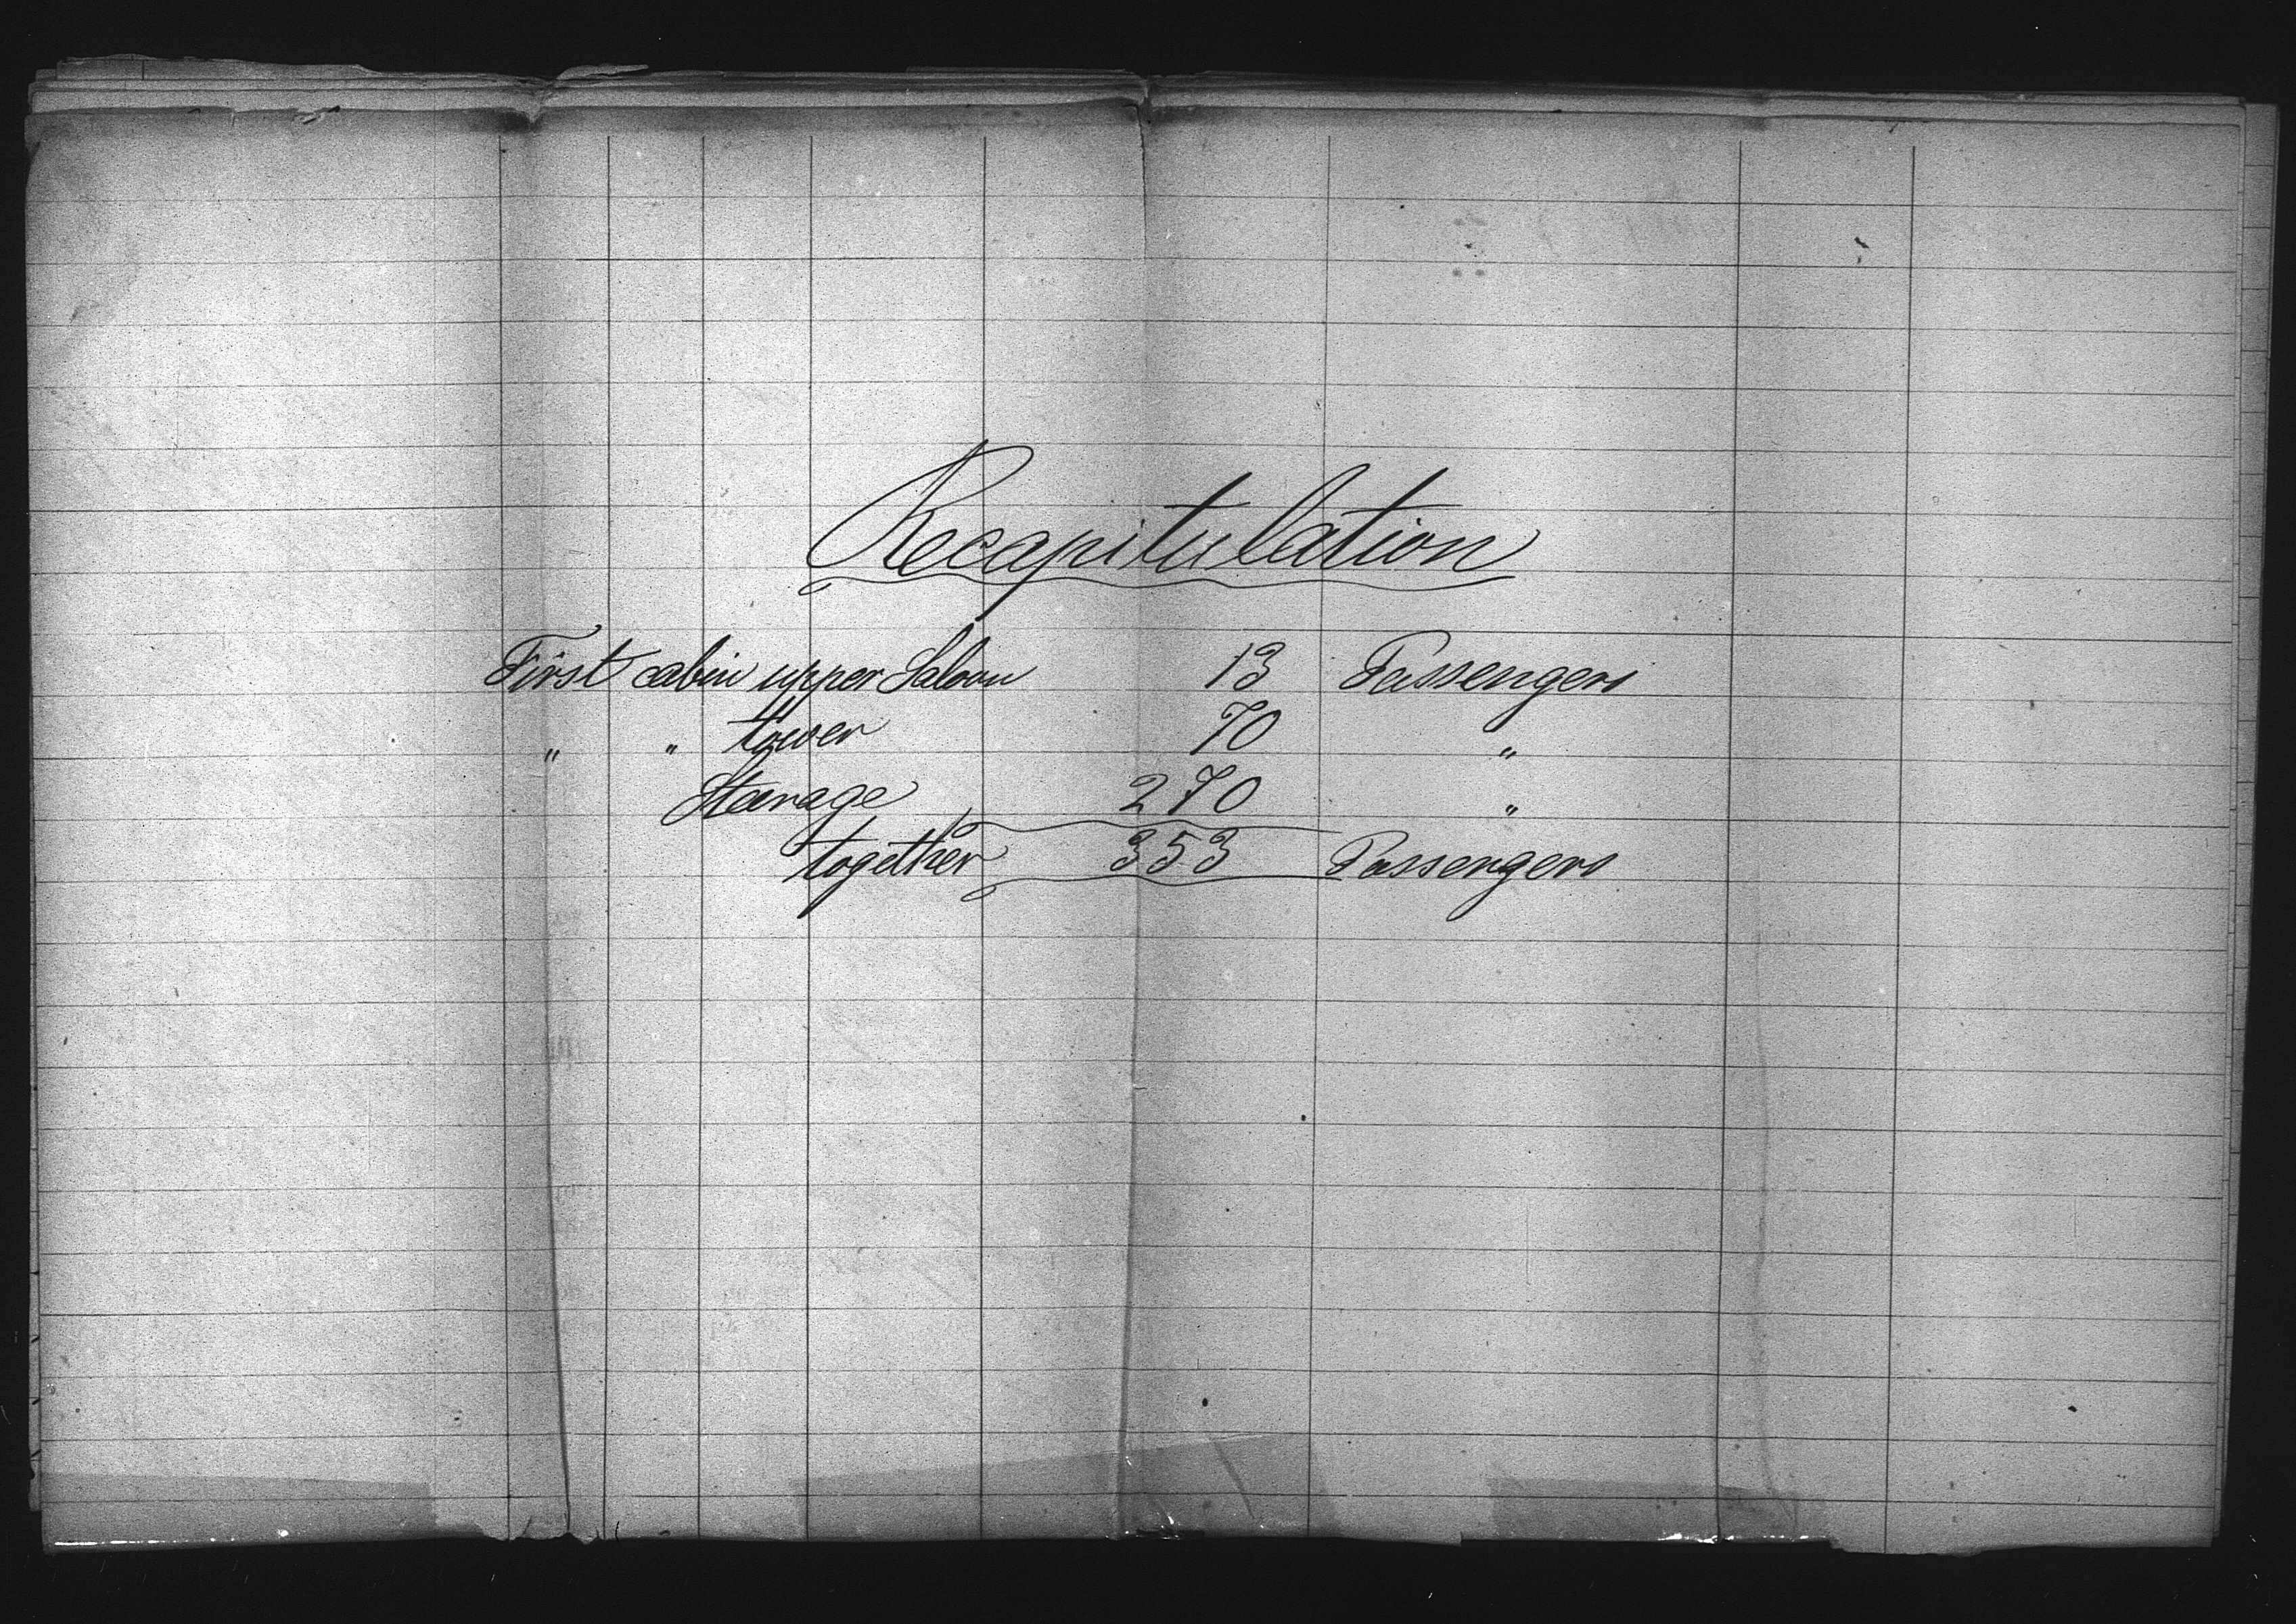 Recapitulation
First cabin upper Saloon 13 Passengers
" " lower 70 "
Steerage 270 "
together 353 Passengers